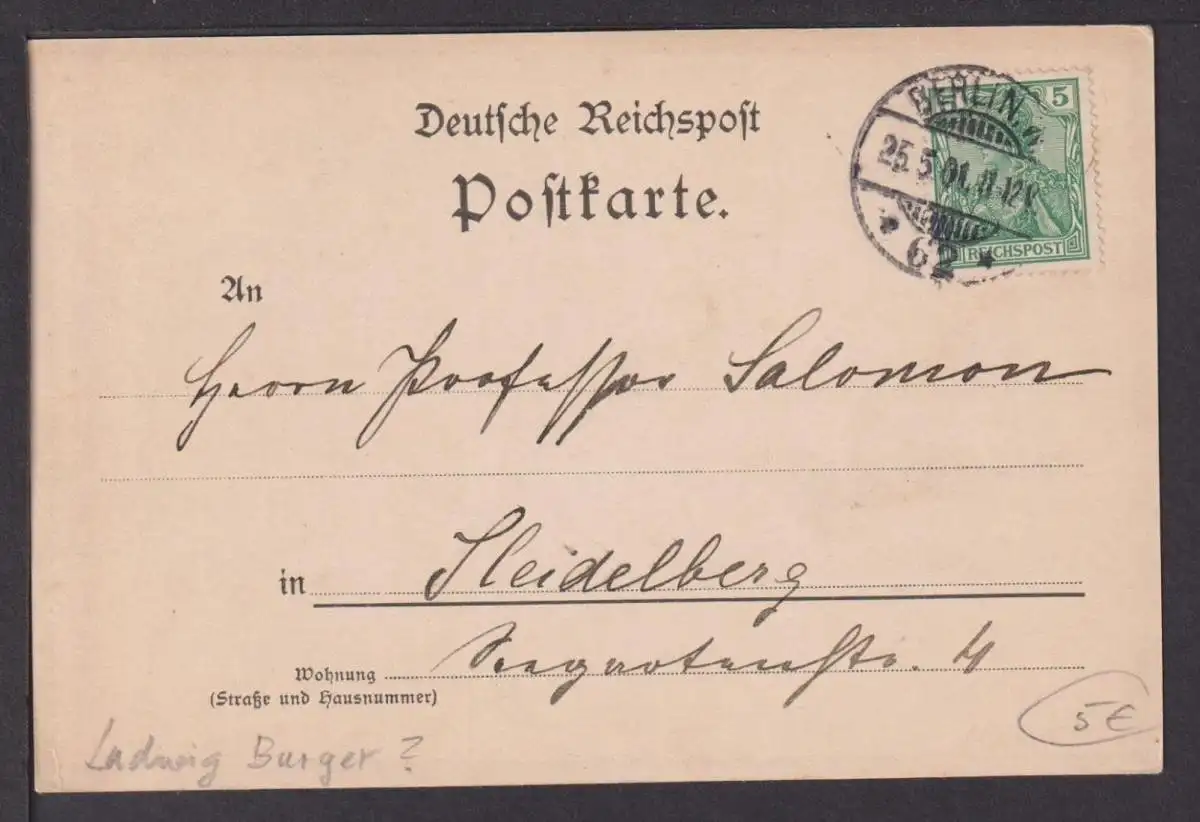 Deutsche Reichspost
Postkarte.
BERLIN.
5
25.5.01.11-12V.
* 62 *
REICHSPOST
An
Herrn Professor Salomon
in Heidelberg
Wohnung Seegartenstr. 4
(Straße und Hausnummer)
5€
Ludwig Burger?